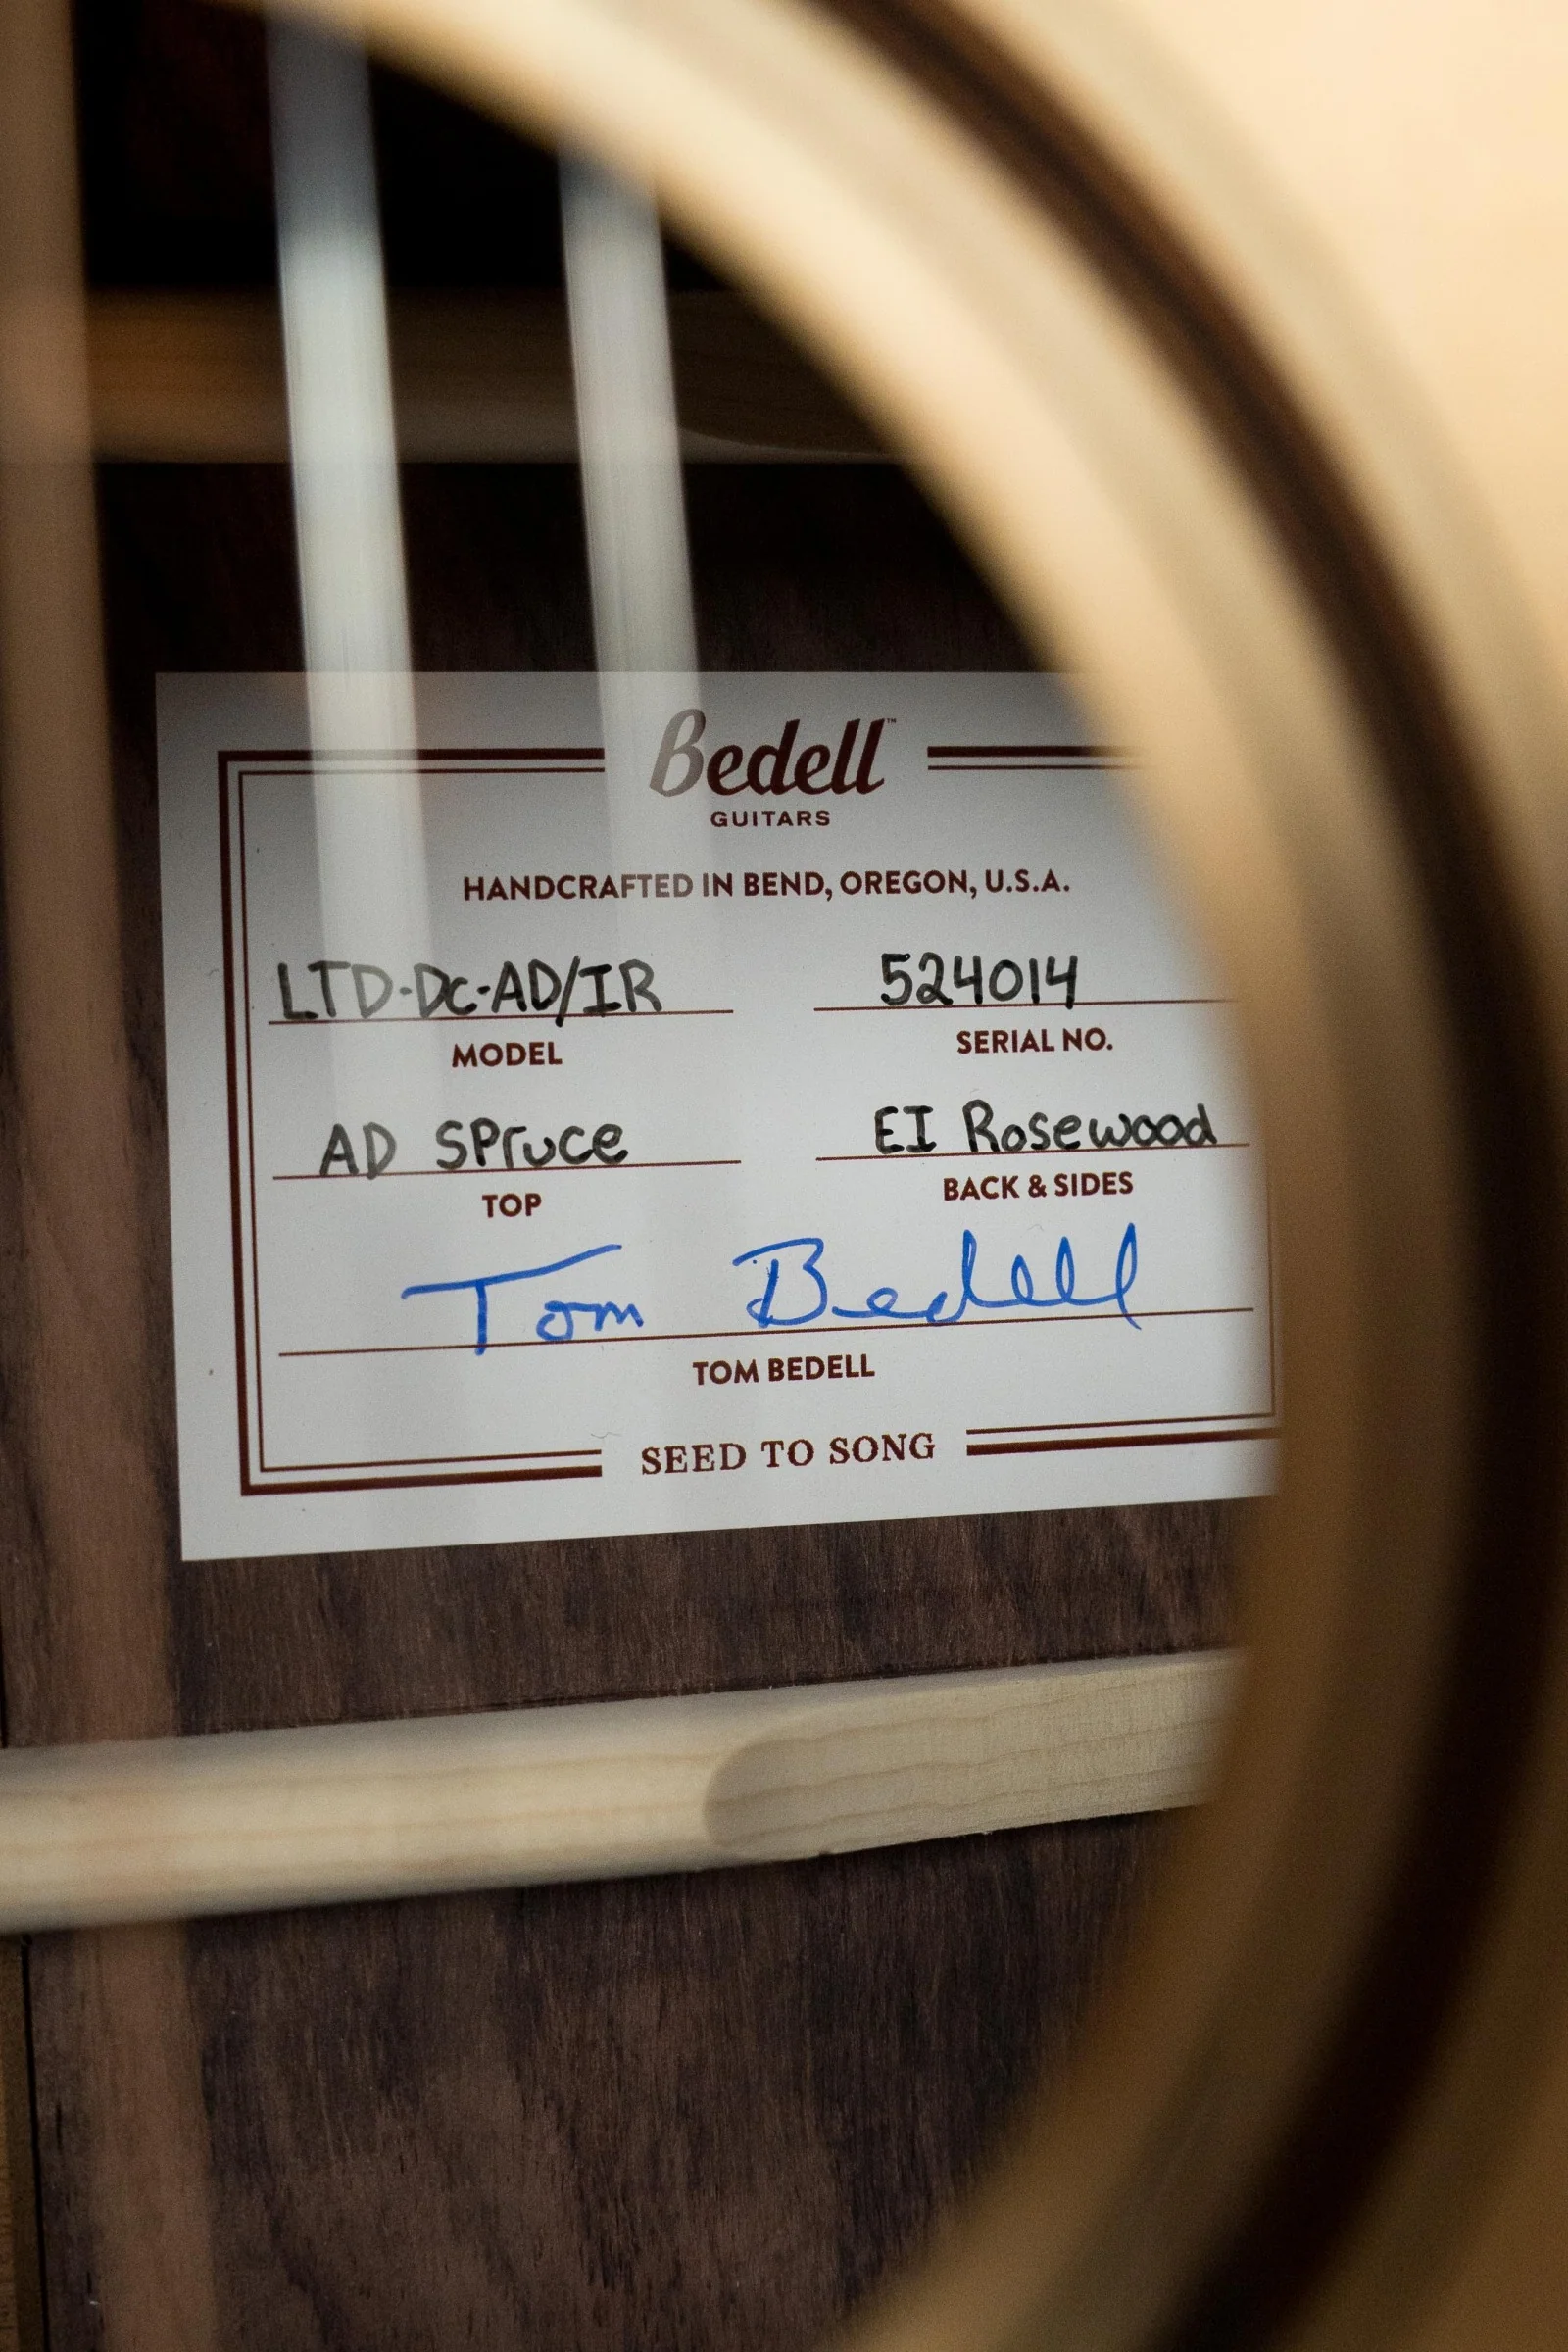 Bedell™
GUITARS
HANDCRAFTED IN BEND, OREGON, U.S.A.
LTD-DC-AD/IR 524014
MODEL SERIAL NO.
AD Spruce EI Rosewood
TOP BACK & SIDES
Tom Bedell
TOM BEDELL
SEED TO SONG